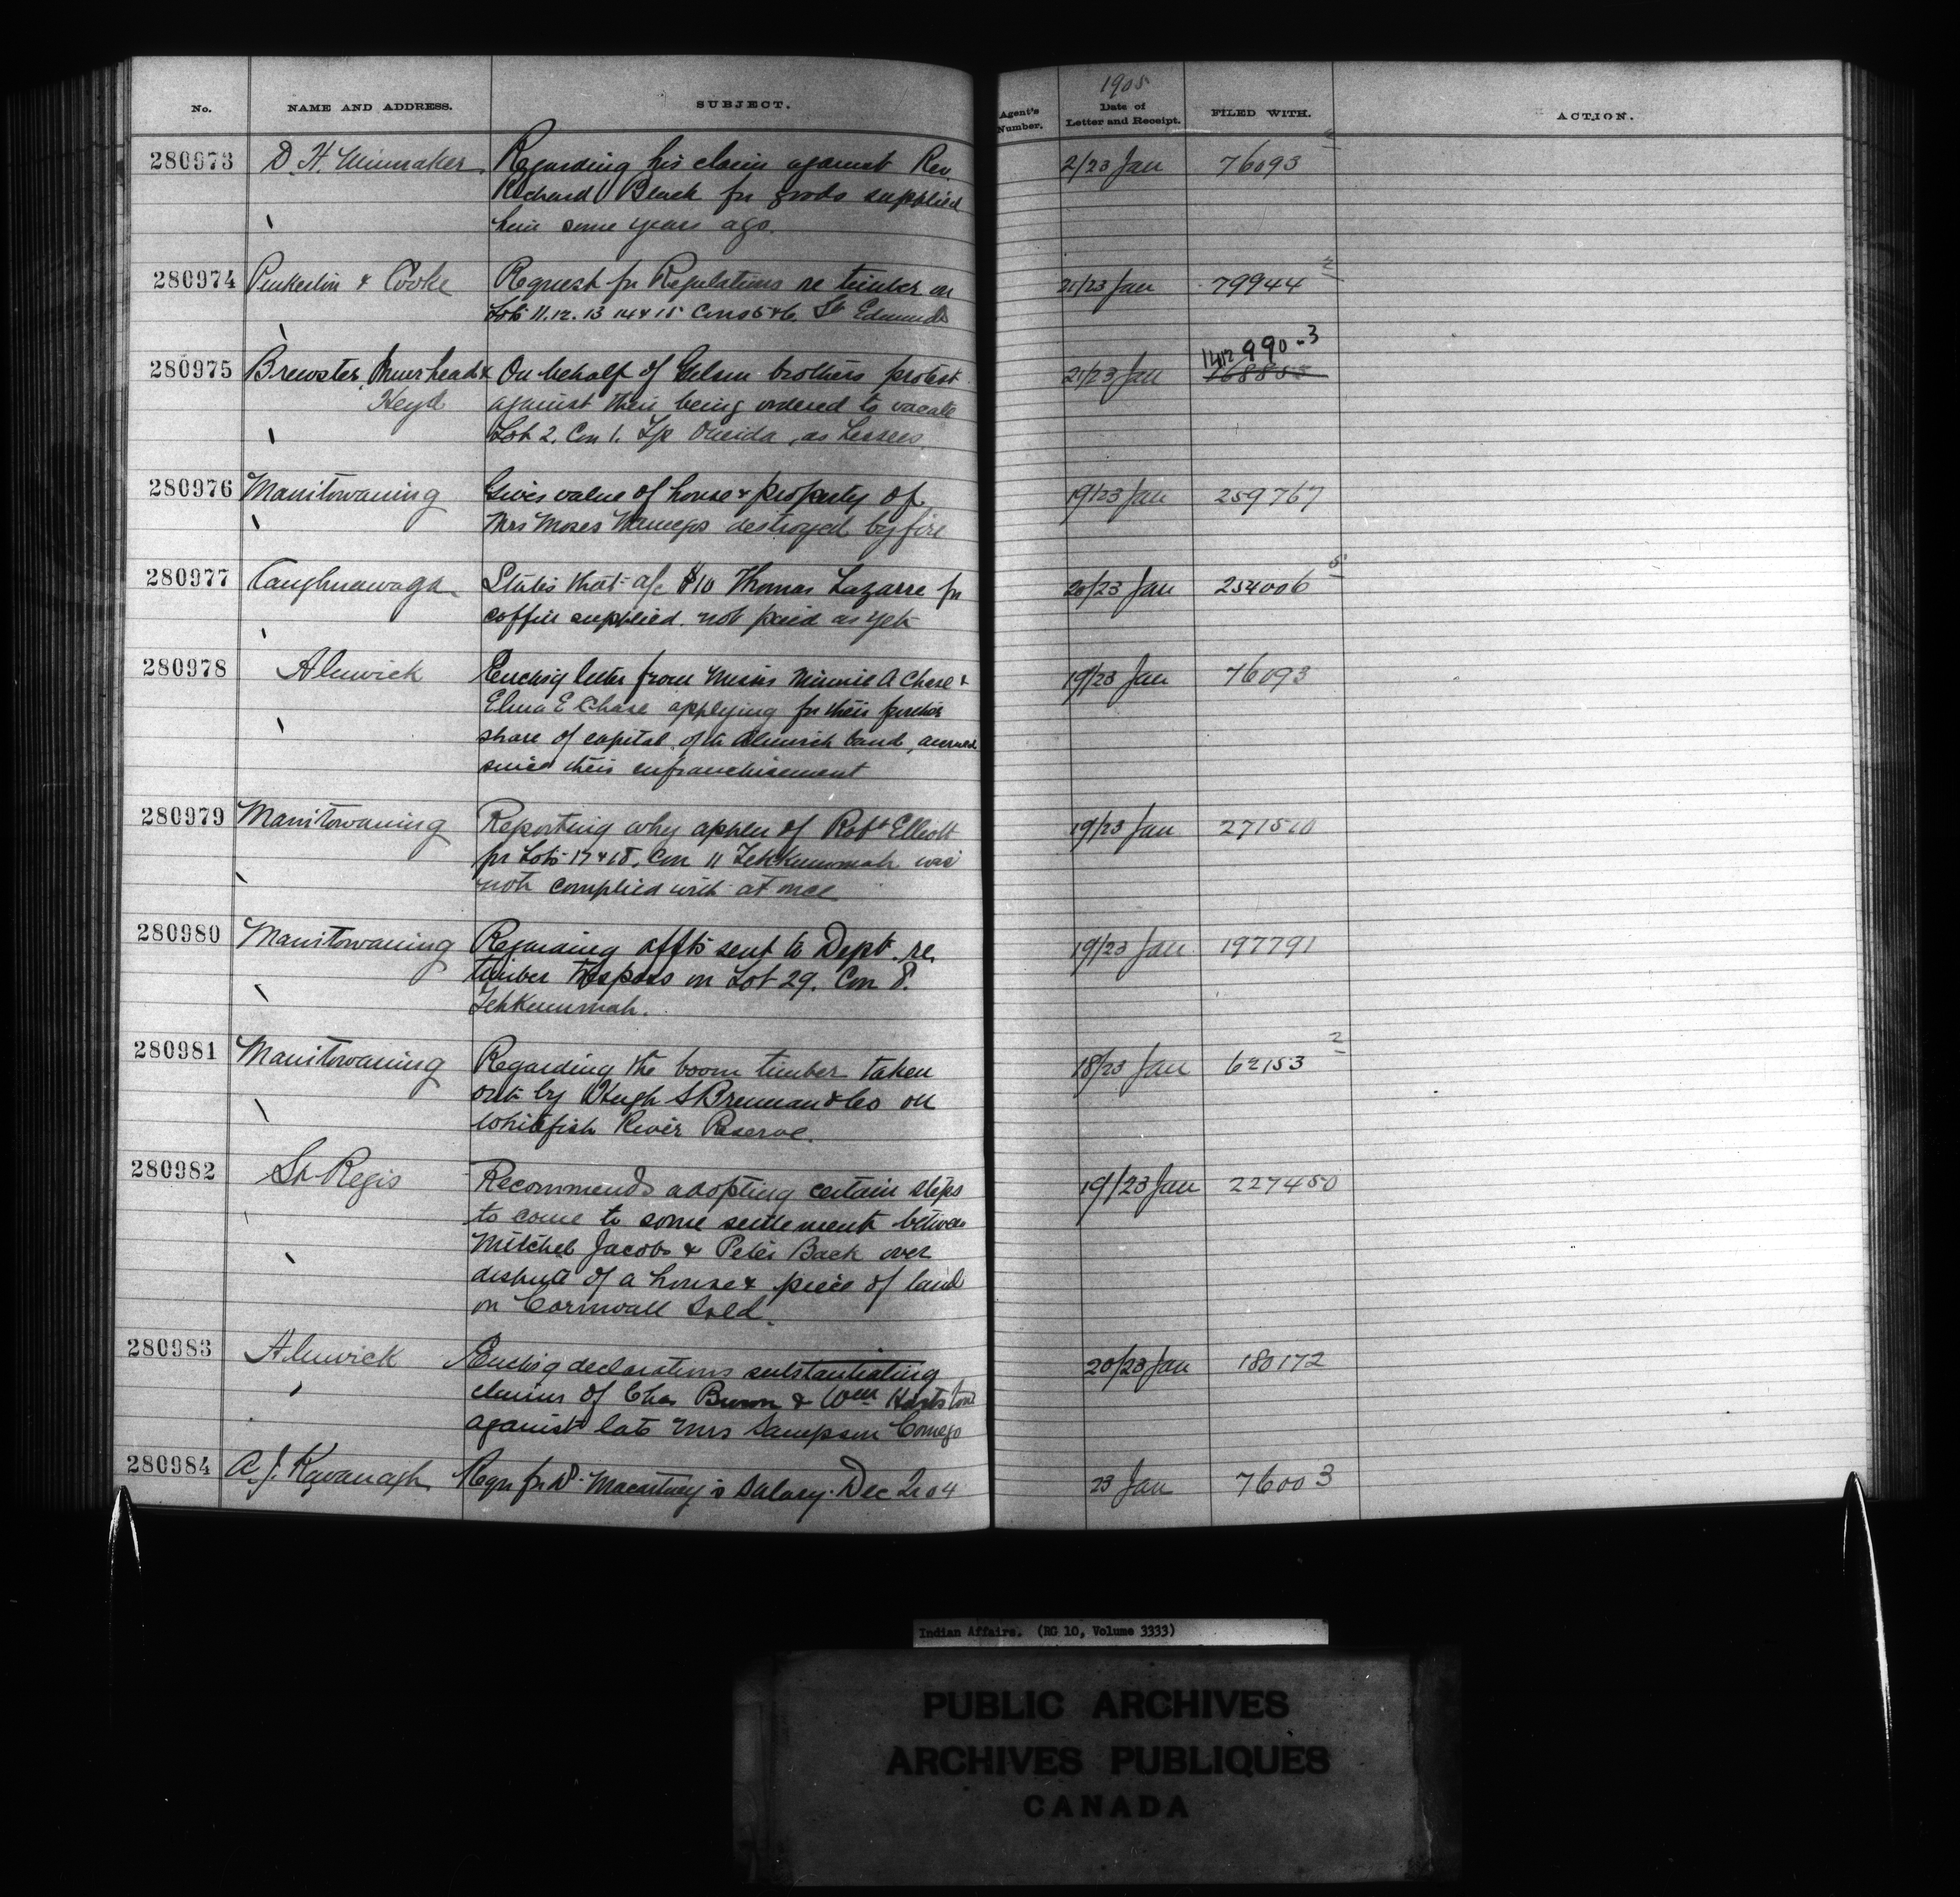 1905
No. NAME AND ADDRESS. SUBJECT. Agent's Number. Date of Letter and Receipt. FILED WITH. ACTION.
280973 D. H. Minaker Regarding his claim against Rev. 2/23 Jan 76093
Richard Black for goods supplied
him some years ago.
280974 Pinkerton & Cooke Request for Regulations re timber on 21/23 Jan 79944 2
Lots 11. 12. 13 14 & 15 Cons 5 & 6. St Edmunds
280975 Brewster, Muirhead & On behalf of brothers protest 21/23 Jan 1412 990-3
Heyd against their being ordered to vacate
Lot 2. Con 1. T/p Oneida, as Lessees
280976 Manitowaning Gives value of house & property of 19/23 Jan 259767
Mrs Moses destroyed by fire
280977 Caughnawaga States that a/c $10 Thomas Lazarre for 20/23 Jan 254006 5
coffin supplied. not paid as yet
280978 Alnwick Enclosg letter from Misses Minnie A Chase & 19/23 Jan 76093
E Chase applying for their further
share of capital of the Alnwick band, accrued
since their enfranchisement
280979 Manitowaning Reporting why appln of Robt Elliott 19/23 Jan 271510
for Lots 17 & 18, Con 11 Tehkummah was
not complied with at once
280980 Manitowaning Regarding affts sent to Dept. re. 19/23 Jan 197791
timber trespass on Lot 29. Con 8.
Tehkummah.
280981 Manitowaning Regarding the boom timber taken 18/23 Jan 62153 2
out by Hugh S Brennan & Co on
Whitefish River Reserve.
280982 St Regis Recommends adopting certain steps 19/23 Jan 227450
to come to some settlement between
Mitchel Jacobs & Peter Back over
dispute of a house & piece of land
on Cornwall Isld.
280983 Alnwick Enclosg declarations substantiating 20/23 Jan 180172
claims of Chas & Wm
against late Mrs Sampson Comego
280984 A. J. Kavanagh Reqn for Dr. Macartney's Salary. Dec 2r 04 23 Jan 76003
Indian Affairs. (RG 10, Volume 3333)
PUBLIC ARCHIVES
ARCHIVES PUBLIQUES
CANADA